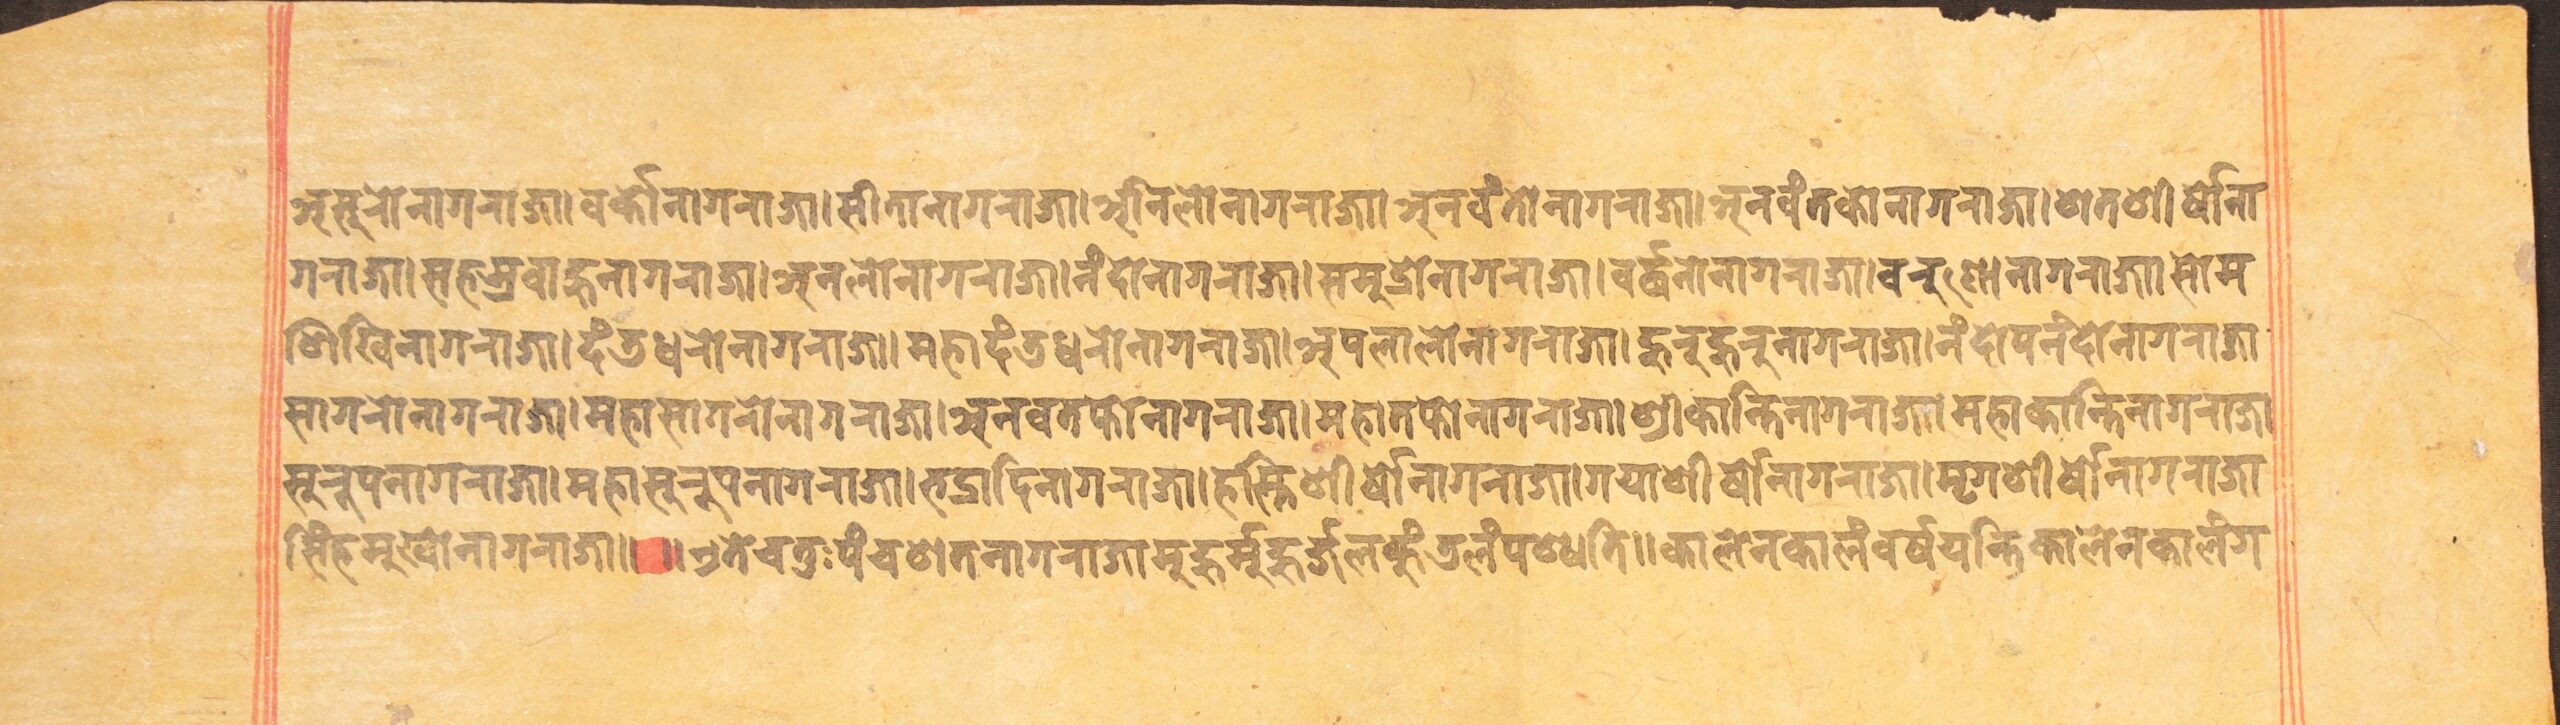 असूरोनागराजा।वर्कोनागराजा।सीतानागराजा।अनिलोनागराजा।अनवंतोनागराजा।अनवंतकोनागराजा।शतशीर्षोना
गराजा।सहस्रवाहुनागराजा।अनलोनागराजा।नंदोनागराजा।समुद्रोनागराजा।वर्द्धनोनागराजा।वरुणोनागराजा।सोम
शिखिनागराजा।दंतुधरोनागराजा।महादंतुधरोनागराजा।अपलालोनागराजा।हुरुहुरुनागराजा।नंदोपनंदोनागराजा
सागरोनागराजा।महासागरोनागराजा।अनवतप्तोनागराजा।महातप्तोनागराजा।श्रीकान्तिनागराजा।महाकान्तिनागराजा
सुरुपनागराजा।महासुरुपनागराजा।रुद्रादिनागराजा।हस्तिशीर्षोनागराजा।गयाशीर्षोनागराजा।मृगशीर्षोनागराजा
सिंहमुखोनागराजा॥॥एतेचतुःपंचशतनागराजामुहुर्मुहुर्ज्जलकुंतुलंपश्यति॥कालेनकालंवर्षयन्तिकालेनकालंग